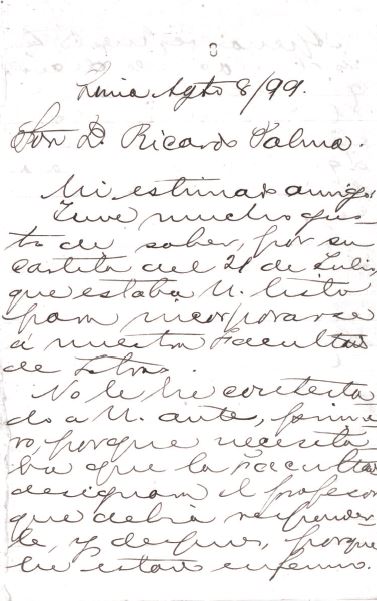 Lima Agto 8/99.
Sor D. Ricardo Palma.
Mi estimado amigo:
Tuve mucho gus-
to de saber, por su
cartita del 21 de Julio,
que estaba U. listo
para incorporarse
á nuestra Facultad
de Letras.
No le he contesta
do a U. antes, prime-
ro, porque necesita
ba que la Facultad
designara el profesor
que debia responder
le, y despues, porque
he estado enfermo.